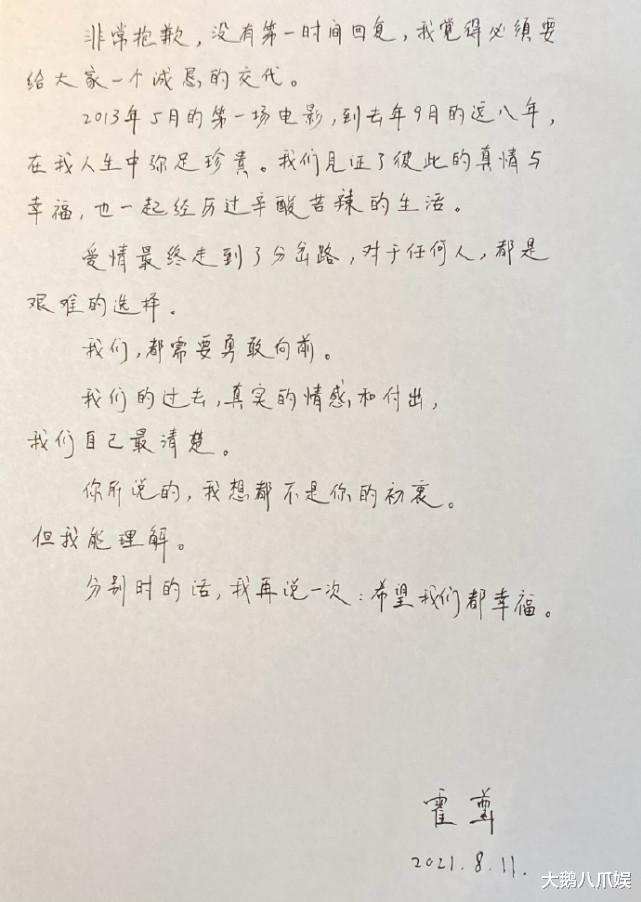 非常抱歉，没有第一时间回复，我觉得必须要
给大家一个诚恳的交代。
2013年5月的第一场电影，到去年9月的这八年，
在我人生中弥足珍贵。我们见证了彼此的真情与
幸福，也一起经历过辛酸苦辣的生活。
爱情最终走到了分岔路，对于任何人，都是
艰难的选择。
我们，都需要勇敢向前。
我们的过去，真实的情感和付出，
我们自己最清楚。
你所说的，我想都不是你的初衷。
但我能理解。
分别时的话，我再说一次：希望我们都幸福。
霍尊
2021.8.11.
大鹅八爪娱